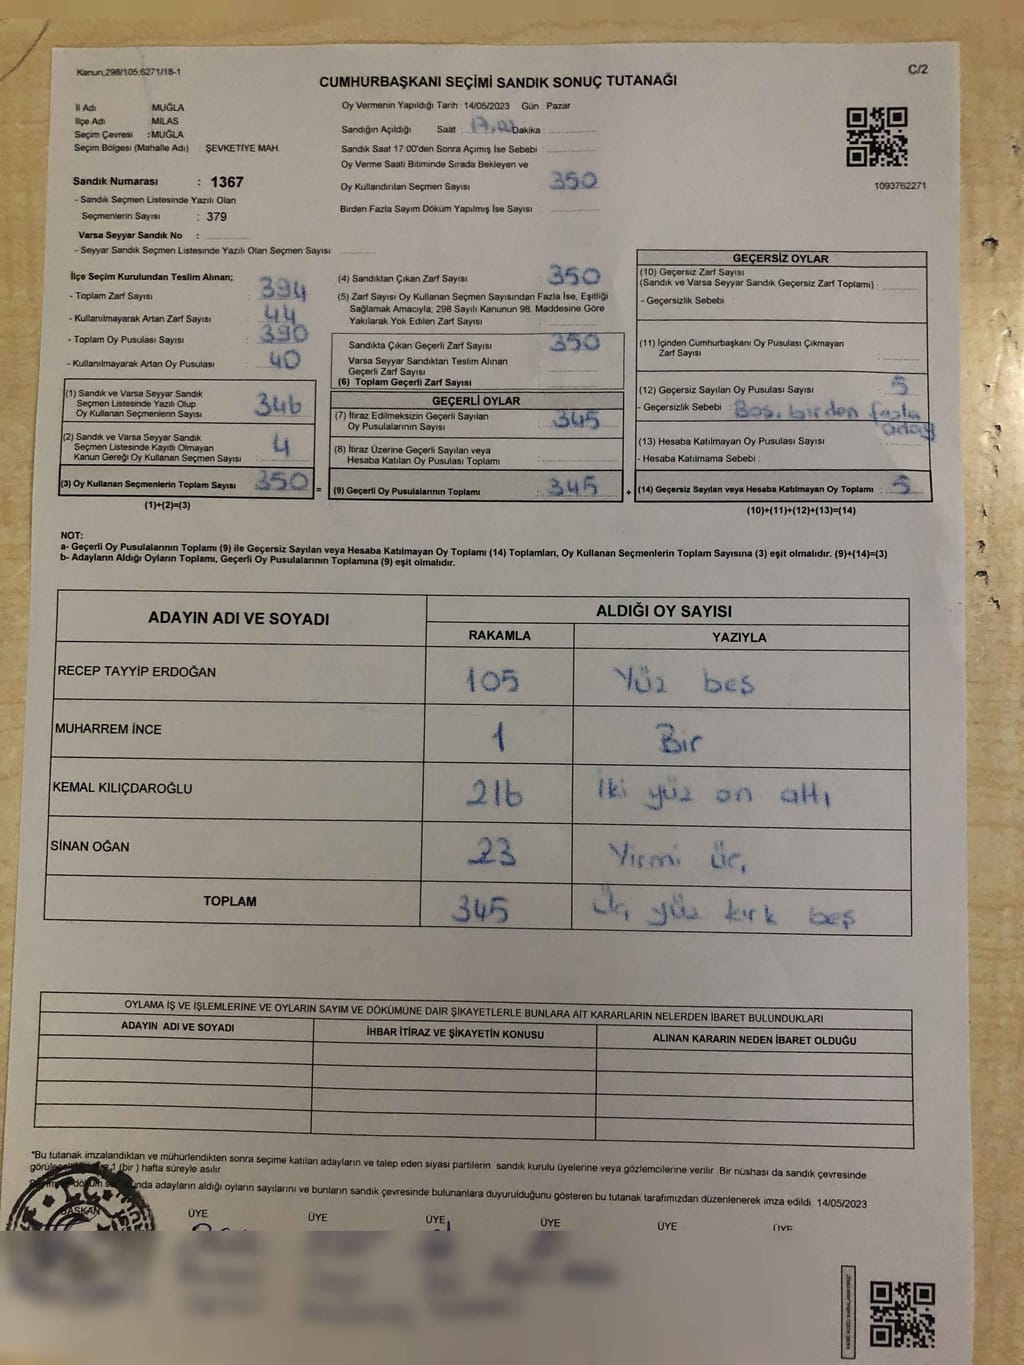 Kanun,298/105,6271/18-1
C/2
CUMHURBAŞKANI SEÇİMİ SANDIK SONUÇ TUTANAĞI
İl Adı : MUĞLA
İlçe Adı : MİLAS
Seçim Çevresi : MUĞLA
Seçim Bölgesi (Mahalle Adı) : ŞEVKETİYE MAH.
Sandık Numarası : 1367
- Sandık Seçmen Listesinde Yazılı Olan
Seçmenlerin Sayısı : 379
Varsa Seyyar Sandık No :
- Seyyar Sandık Seçmen Listesinde Yazılı Olan Seçmen Sayısı:
Oy Vermenin Yapıldığı Tarih : 14/05/2023 Gün : Pazar
Sandığın Açıldığı Saat : 17.00 Dakika :
Sandık Saat 17:00'den Sonra Açımış İse Sebebi :
Oy Verme Saati Bitiminde Sırada Bekleyen ve
Oy Kullandırılan Seçmen Sayısı 350
Birden Fazla Sayım Döküm Yapılmış İse Sayısı :
1093762271
İlçe Seçim Kurulundan Teslim Alınan;
- Toplam Zarf Sayısı : 394
- Kullanılmayarak Artan Zarf Sayısı : 44
- Toplam Oy Pusulası Sayısı : 390
- Kullanılmayarak Artan Oy Pusulası : 40
(1) Sandık ve Varsa Seyyar Sandık
Seçmen Listesinde Yazılı Olup
Oy Kullanan Seçmenlerin Sayısı : 346
(2) Sandık ve Varsa Seyyar Sandık
Seçmen Listesinde Kayıtlı Olmayan
Kanun Gereği Oy Kullanan Seçmen Sayısı : 4
(3) Oy Kullanan Seçmenlerin Toplam Sayısı : 350 =
(1)+(2)=(3)
(4) Sandıktan Çıkan Zarf Sayısı : 350
(5) Zarf Sayısı Oy Kullanan Seçmen Sayısından Fazla İse, Eşitliği
Sağlamak Amacıyla, 298 Sayılı Kanunun 98. Maddesine Göre
Yakılarak Yok Edilen Zarf Sayısı :
Sandıkta Çıkan Geçerli Zarf Sayısı : 350
Varsa Seyyar Sandıktan Teslim Alınan
Geçerli Zarf Sayısı :
(6) Toplam Geçerli Zarf Sayısı :
GEÇERLİ OYLAR
(7) İtiraz Edilmeksizin Geçerli Sayılan
Oy Pusulalarının Sayısı : 345
(8) İtiraz Üzerine Geçerli Sayılan veya
Hesaba Katılan Oy Pusulası Toplamı :
(9) Geçerli Oy Pusulalarının Toplamı : 345 +
GEÇERSİZ OYLAR
(10) Geçersiz Zarf Sayısı
(Sandık ve Varsa Seyyar Sandık Geçersiz Zarf Toplamı) :
- Geçersizlik Sebebi :
(11) İçinden Cumhurbaşkanı Oy Pusulası Çıkmayan
Zarf Sayısı :
(12) Geçersiz Sayılan Oy Pusulası Sayısı : 5
- Geçersizlik Sebebi : Boş, birden fazla
aday
(13) Hesaba Katılmayan Oy Pusulası Sayısı :
- Hesaba Katılmama Sebebi :
(14) Geçersiz Sayılan veya Hesaba Katılmayan Oy Toplamı : 5
(10)+(11)+(12)+(13)=(14)
NOT:
a- Geçerli Oy Pusulalarının Toplamı (9) ile Geçersiz Sayılan veya Hesaba Katılmayan Oy Toplamı (14) Toplamları, Oy Kullanan Seçmenlerin Toplam Sayısına (3) eşit olmalıdır. (9)+(14)=(3)
b- Adayların Aldığı Oyların Toplamı, Geçerli Oy Pusulalarının Toplamına (9) eşit olmalıdır.
ADAYIN ADI VE SOYADI ALDIĞI OY SAYISI
RAKAMLA YAZIYLA
RECEP TAYYİP ERDOĞAN 105 Yüz beş
MUHARREM İNCE 1 Bir
KEMAL KILIÇDAROĞLU 216 İki yüz on altı
SİNAN OĞAN 23 Yirmi üç
TOPLAM 345 Üç yüz kırk beş
OYLAMA İŞ VE İŞLEMLERİNE VE OYLARIN SAYIM VE DÖKÜMÜNE DAİR ŞİKAYETLERLE BUNLARA AİT KARARLARIN NELERDEN İBARET BULUNDUKLARI
ADAYIN ADI VE SOYADI İHBAR İTİRAZ VE ŞİKAYETİN KONUSU ALINAN KARARIN NEDEN İBARET OLDUĞU
*Bu tutanak imzalandıktan ve mühürlendikten sonra seçime katılan adayların ve talep eden siyasi partilerin sandık kurulu üyelerine veya gözlemcilerine verilir. Bir nüshası da sandık çevresinde
1 (bir) hafta süreyle asılır.
adayların aldığı oyların sayılarını ve bunların sandık çevresinde bulunanlara duyurulduğunu gösteren bu tutanak tarafımızdan düzenlenerek imza edildi. 14/05/2023
BAŞKAN ÜYE ÜYE ÜYE ÜYE ÜYE ÜYE